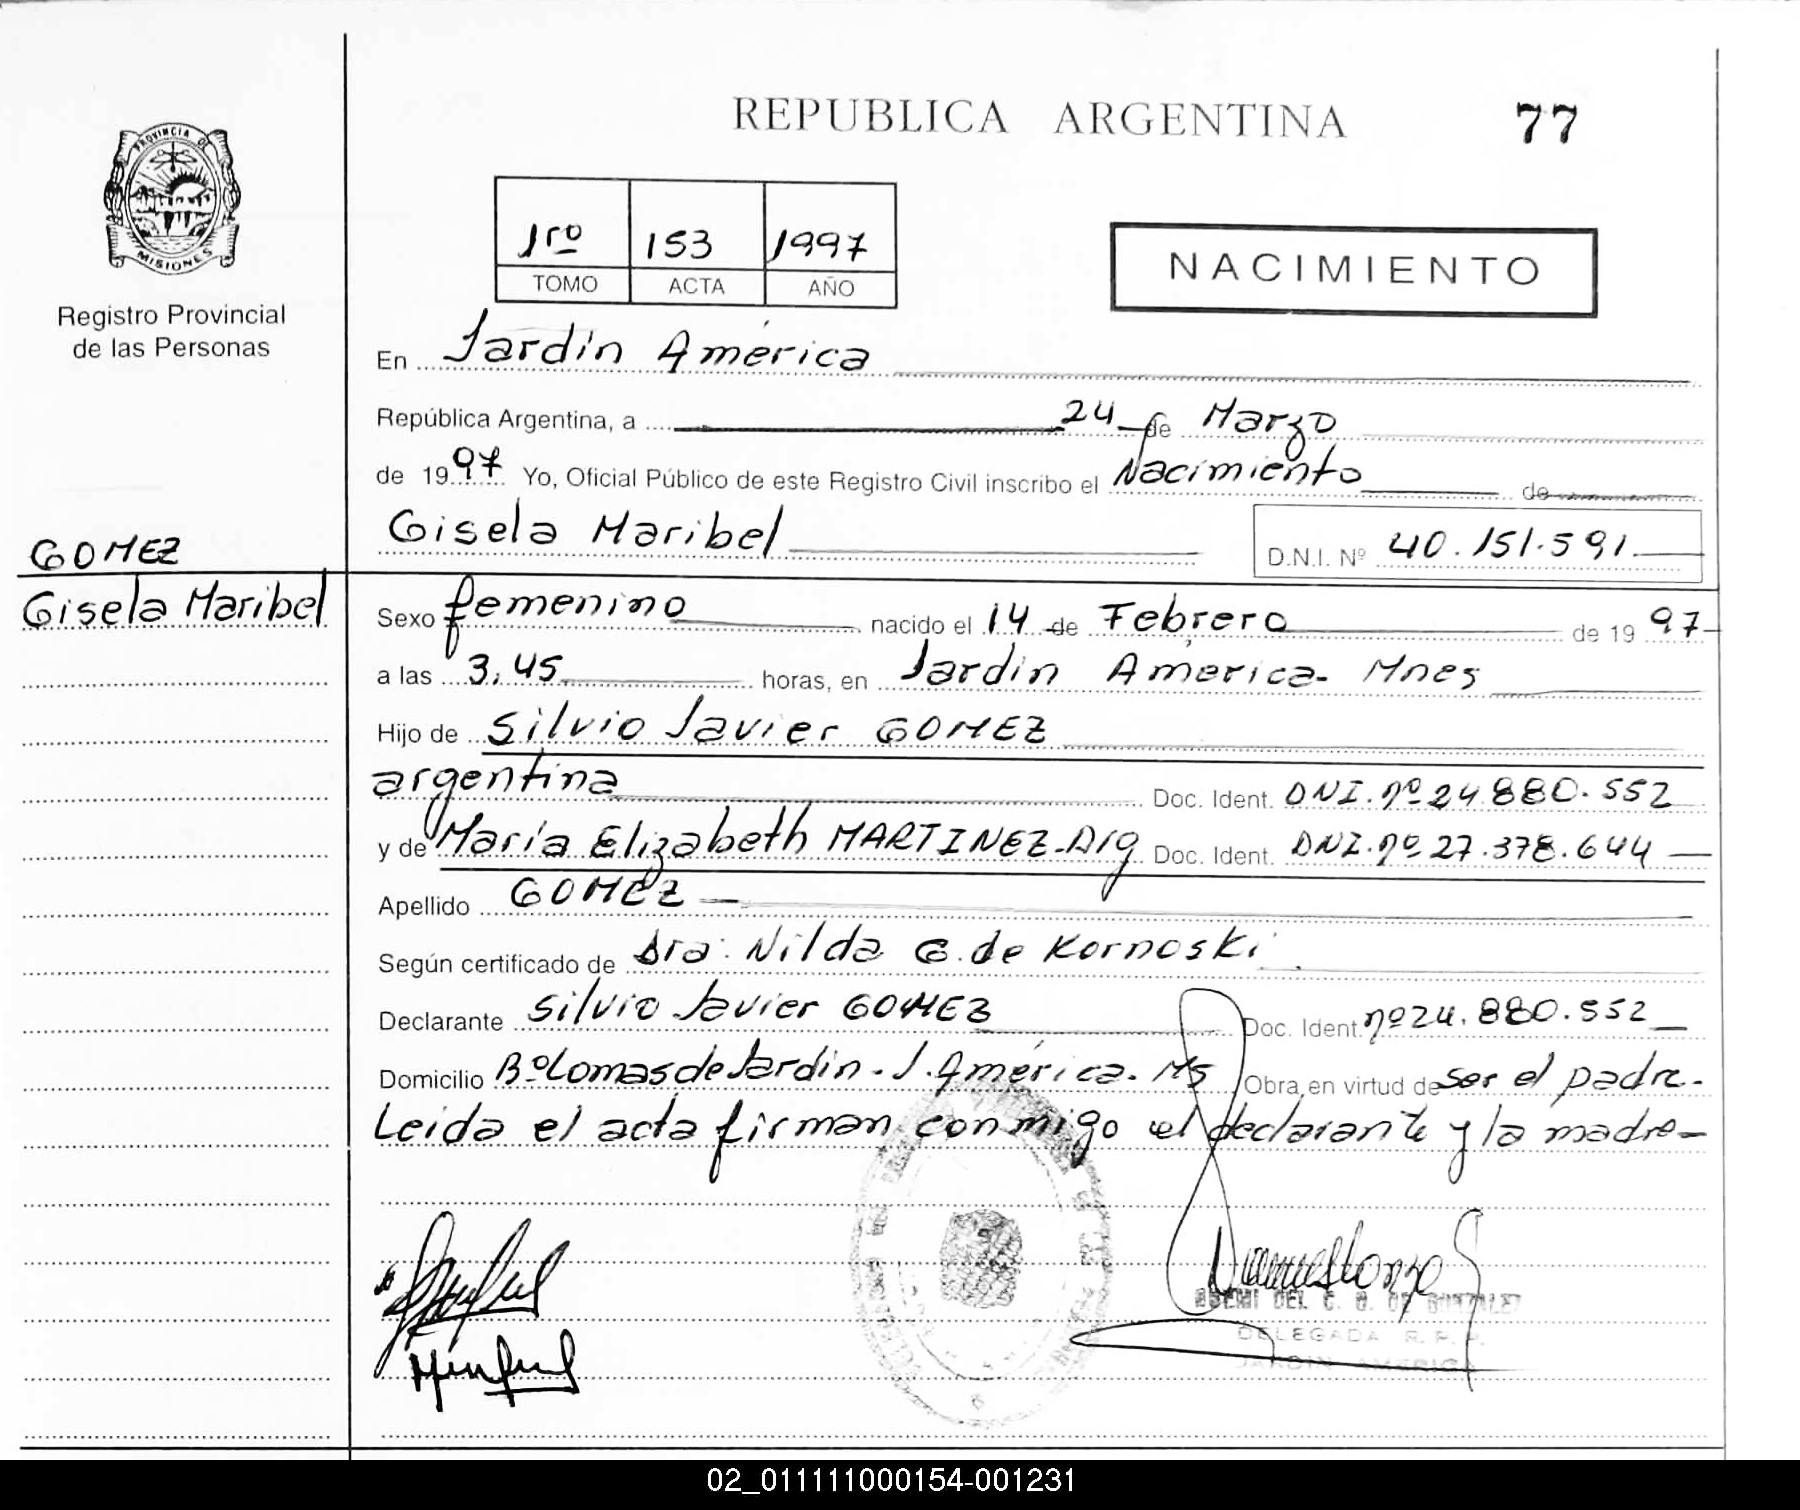 REPUBLICA ARGENTINA 77
PROVINCIA DE
MISIONES
Registro Provincial
de las Personas
1ro 153 1997
TOMO ACTA AÑO
NACIMIENTO
En Jardín América
República Argentina, a 24 de Marzo
de 1997 Yo, Oficial Público de este Registro Civil inscribo el Nacimiento de
Gisela Maribel D.N.I. Nº 40.151.591
GOMEZ
Gisela Maribel
Sexo femenino nacido el 14 de Febrero de 1997
a las 3,45 horas, en Jardín América. Mnes
Hijo de Silvio Javier GOMEZ
argentina Doc. Ident. DNI. nº 24.880.552
y de María Elizabeth MARTINEZ-Arg Doc. Ident. DNI. nº 27.378.644
Apellido GOMEZ
Según certificado de Dra. Nilda G. de Kornoski
Declarante Silvio Javier GOMEZ Doc. Ident. nº 24.880.552
Domicilio Bº Lomas de Jardín. J. América. Ms Obra, en virtud de ser el padre.
Leida el acta firman conmigo el declarante y la madre
DEL C. G. DE GONZALEZ
DELEGADA R. P. P.
JARDIN AMERICA
02_011111000154-001231